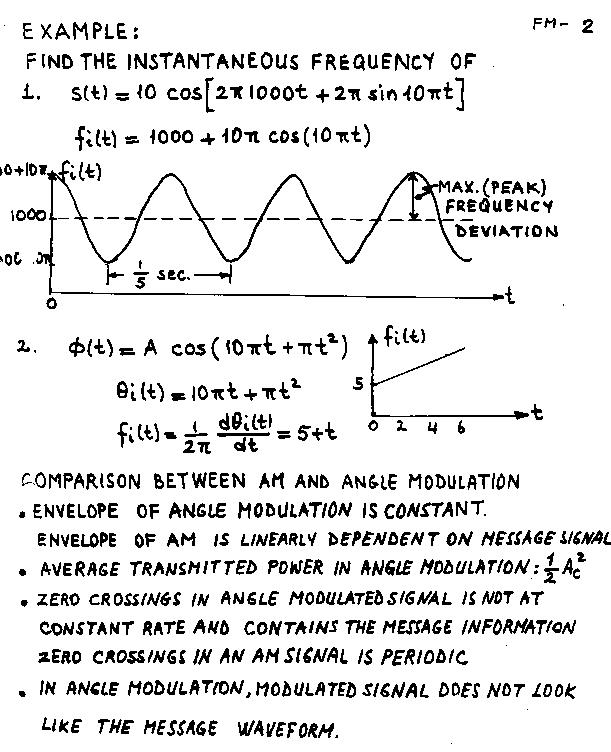 FM- 2
EXAMPLE:
FIND THE INSTANTANEOUS FREQUENCY OF
1. s(t) = 10 cos[2π1000t + 2π sin 10πt]
fi(t) = 1000 + 10π cos(10πt)
fi(t)
MAX. (PEAK)
1000
FREQUENCY
DEVIATION
1/5 sec.
0
t
2. φ(t) = A cos(10πt + πt²)
fi(t)
θi(t) = 10πt + πt²
5
fi(t) = 1/2π dθi(t)/dt = 5+t
t
0 2 4 6
COMPARISON BETWEEN AM AND ANGLE MODULATION
• ENVELOPE OF ANGLE MODULATION IS CONSTANT.
ENVELOPE OF AM IS LINEARLY DEPENDENT ON MESSAGE SIGNAL
• AVERAGE TRANSMITTED POWER IN ANGLE MODULATION: 1/2 Ac²
• ZERO CROSSINGS IN ANGLE MODULATED SIGNAL IS NOT AT
CONSTANT RATE AND CONTAINS THE MESSAGE INFORMATION
ZERO CROSSINGS IN AN AM SIGNAL IS PERIODIC
• IN ANGLE MODULATION, MODULATED SIGNAL DOES NOT LOOK
LIKE THE MESSAGE WAVEFORM.